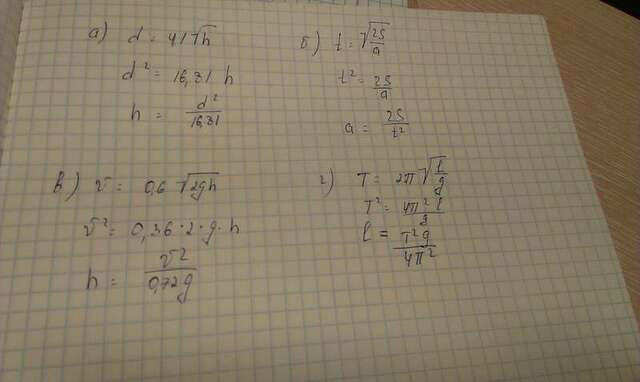 а) d = 4,1√h
d² = 16,81 h
h = d²/16,81
б) t = √2S/a
t² = 2S/a
a = 2S/t²
в) v = 0,6 √2gh
v² = 0,36·2·g·h
h = v²/0,72g
г) T = 2π√l/g
T² = 4π² l/g
l = T²g/4π²